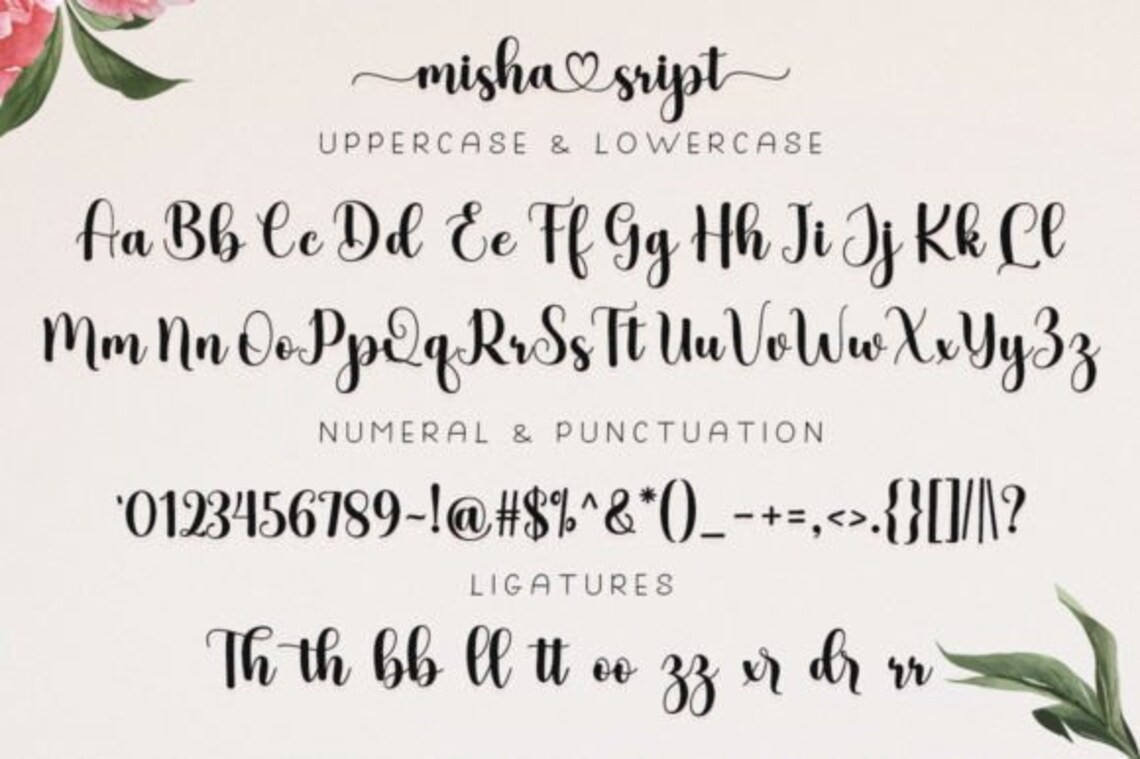 misha♡sript
UPPERCASE & LOWERCASE
Aa Bb Cc Dd Ee Ff Gg Hh Ii Jj Kk Ll
Mm Nn Oo Pp Qq Rr Ss Tt Uu Vv Ww Xx Yy Zz
NUMERAL & PUNCTUATION
`0123456789~!@#$%^&*()_-+=,<>.{}[]/|\?
LIGATURES
Th th bb ll tt oo zz xr dr rr